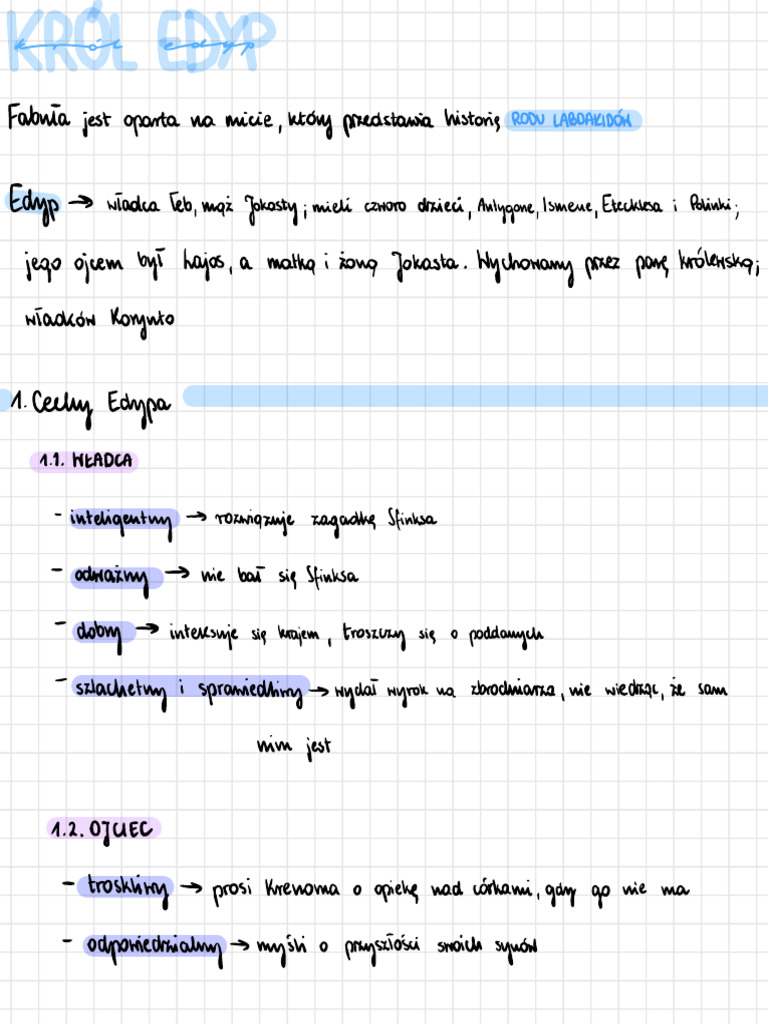 KRÓL EDYP
król edyp
Fabuła jest oparta na micie, który przedstawia historię RODU LABDAKIDÓW
Edyp → władca Teb, mąż Jokasty; mieli czworo dzieci, Antygonę, Ismenę, Eteoklesa i Polinika;
jego ojcem był Lajos, a matką i żoną Jokasta. Wychowany przez parę królewską;
władców Koryntu
1. Cechy Edypa
1.1. WŁADCA
- inteligentny → rozwiązuje zagadkę Sfinksa
- odważny → nie bał się Sfinksa
- dobry → interesuje się krajem, troszczy się o poddanych
- szlachetny i sprawiedliwy → wydał wyrok na zbrodniarza, nie wiedząc, że sam
nim jest
1.2. OJCIEC
- troskliwy → prosi Kreona o opiekę nad córkami, gdy go nie ma
- odpowiedzialny → myśli o przyszłości swoich synów